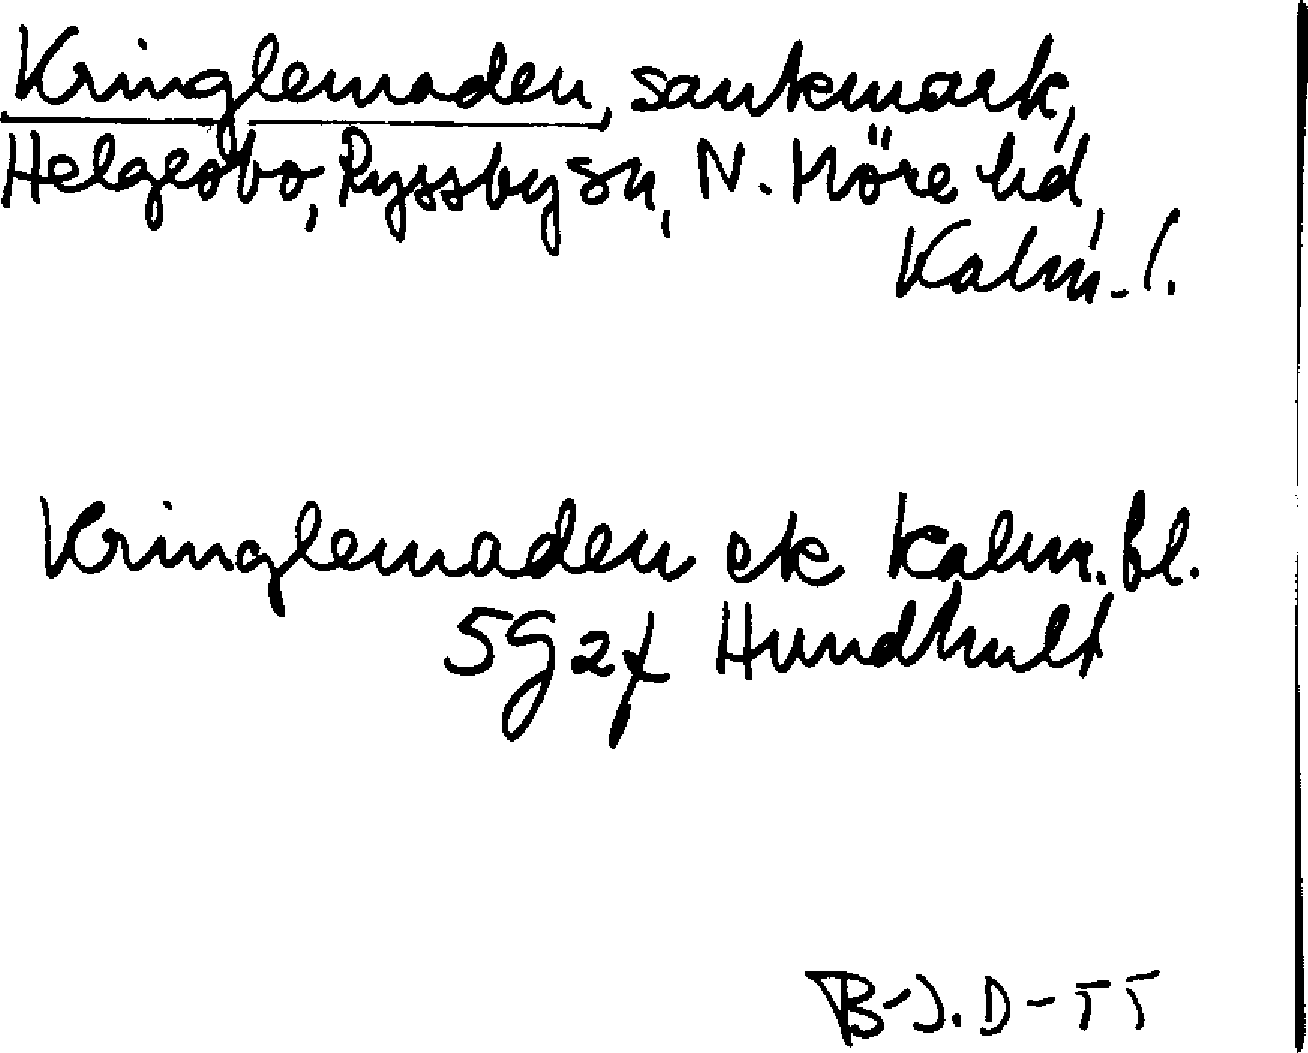 Kringlemaden, sankmark,
Helgesbo, Ryssby sn, N. Möre hd,
Kalm. l.
Kringlemaden ek Kalm. bl.
5G 2f Hundhult
B-J. D-TT